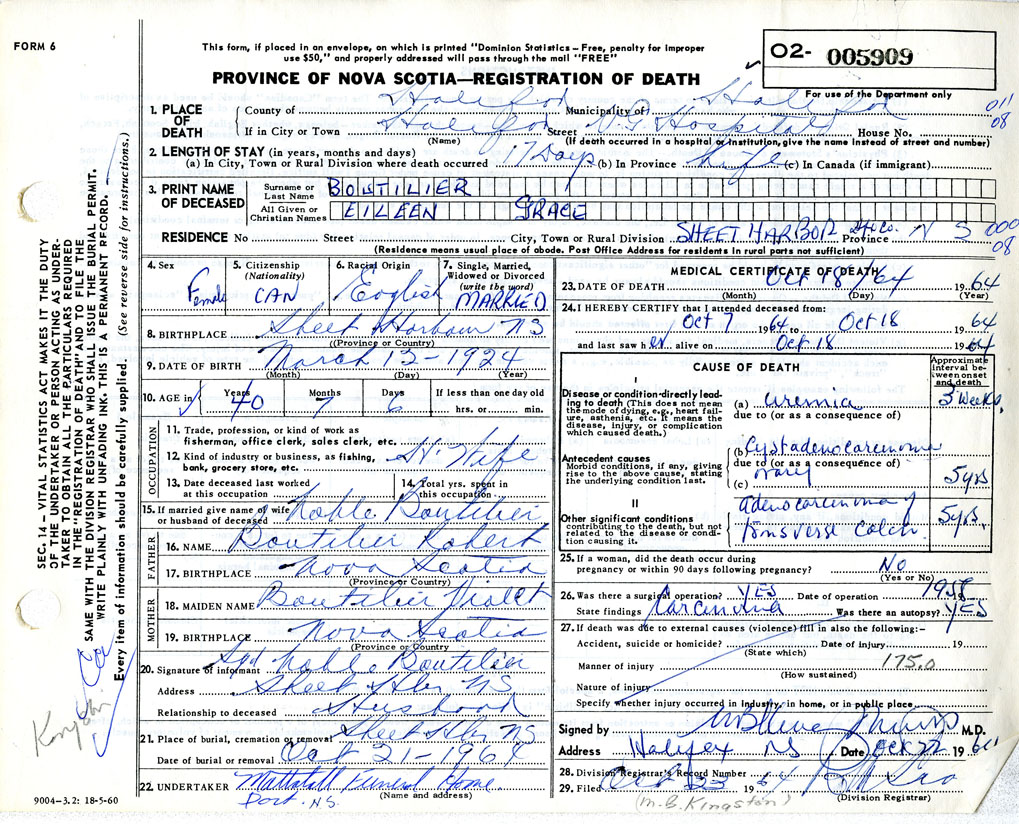 FORM 6
This form, if placed in an envelope, on which is printed "Dominion Statistics – Free, penalty for improper
use $50," and properly addressed will pass through the mail "FREE"
PROVINCE OF NOVA SCOTIA—REGISTRATION OF DEATH
02- 005909
For use of the Department only
011
08
1. PLACE OF DEATH
County of Halifax Municipality of Halifax
If in City or Town Halifax Street V.G. Hospital House No.
(Name) (If death occurred in a hospital or institution, give the name instead of street and number)
2. LENGTH OF STAY (in years, months and days)
(a) In City, Town or Rural Division where death occurred 17 Days (b) In Province Life (c) In Canada (if immigrant)
3. PRINT NAME OF DECEASED
Surname or Last Name BOUTILIER
All Given or Christian Names EILEEN GRACE
RESIDENCE No Street City, Town or Rural Division SHEET HARBOR Hfx Co. Province N S
000
08
(Residence means usual place of abode. Post Office Address for residents in rural parts not sufficient)
4. Sex Female
5. Citizenship (Nationality) CAN
6. Racial Origin English
7. Single, Married, Widowed or Divorced (write the word) MARRIED
8. BIRTHPLACE Sheet Harbour NS
(Province or Country)
9. DATE OF BIRTH March 12 - 1924
(Month) (Day) (Year)
10. AGE in Years 40 Months 7 Days 6 If less than one day old
hrs. or min.
OCCUPATION
11. Trade, profession, or kind of work as
fisherman, office clerk, sales clerk, etc.
12. Kind of industry or business, as fishing,
bank, grocery store, etc. H. Wife
13. Date deceased last worked
at this occupation
14. Total yrs. spent in
this occupation
15. If married give name of wife
or husband of deceased Noble Boutilier
FATHER
16. NAME Boutilier Robert
17. BIRTHPLACE Nova Scotia
(Province or Country)
MOTHER
18. MAIDEN NAME Boutilier Violet
19. BIRTHPLACE Nova Scotia
(Province or Country)
20. Signature of informant Sgd Noble Boutilier
Address Sheet Hbr NS
Relationship to deceased Husband
21. Place of burial, cremation or removal Sheet Hbr NS
Date of burial or removal Oct 21 - 1964
22. UNDERTAKER Mattatall Funeral Home
(Name and address)
Dart. NS.
9004–3.2: 18-5-60
MEDICAL CERTIFICATE OF DEATH
23. DATE OF DEATH Oct 18/64 1964
(Month) (Day) (Year)
24. I HEREBY CERTIFY that I attended deceased from:
Oct 7 1964 to Oct 18 1964
and last saw her alive on Oct 18 1964
CAUSE OF DEATH
Approximate interval between onset and death
I
Disease or condition directly leading to death (This does not mean the mode of dying, e.g., heart failure, asthenia, etc. It means the disease, injury, or complication which caused death.)
(a) uremia 3 Weeks
due to (or as a consequence of)
Antecedent causes
Morbid conditions, if any, giving rise to the above cause, stating the underlying condition last.
(b) Cystadenocarcinoma
due to (or as a consequence of)
(c) ovary 5 yrs
II
Other significant conditions
contributing to the death, but not related to the disease or condition causing it.
Adenocarcinoma of
transverse colon. 5 yrs.
25. If a woman, did the death occur during
pregnancy or within 90 days following pregnancy? No
(Yes or No)
26. Was there a surgical operation? YES Date of operation
State findings Carcinoma Was there an autopsy? YES
27. If death was due to external causes (violence) fill in also the following:–
Accident, suicide or homicide? Date of injury 19
(State which)
Manner of injury 175.0
(How sustained)
Nature of injury
Specify whether injury occurred in industry, in home, or in public place
Signed by M.D.
Address Halifax NS Date Oct 22 1964
28. Division Registrar's Record Number
29. Filed Oct 23 1964
(Division Registrar)
(M.G. Kingston)
SEC. 14 – VITAL STATISTICS ACT MAKES IT THE DUTY
OF THE UNDERTAKER OR PERSON ACTING AS UNDERTAKER
TO OBTAIN ALL THE PARTICULARS REQUIRED
IN THE "REGISTRATION OF DEATH" AND TO FILE THE
SAME WITH THE DIVISION REGISTRAR WHO SHALL ISSUE THE BURIAL PERMIT.
WRITE PLAINLY WITH UNFADING INK. THIS IS A PERMANENT RECORD.
Every item of information should be carefully supplied. (See reverse side for instructions.)